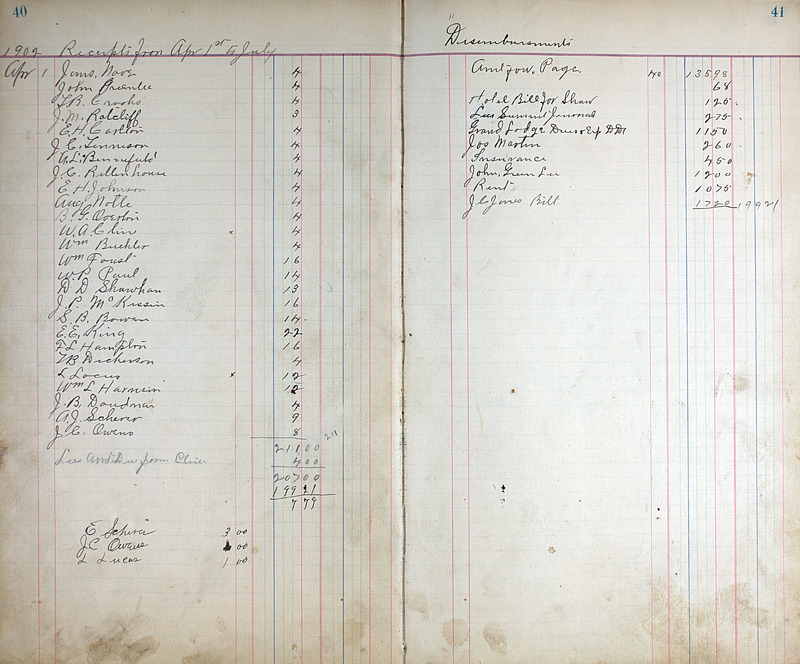 40
1902 Receipts from Apr 1st to July
Apr 1 Jems. Nave 4
John Greenlee 4
T.B. Crooks 4
J.M. Ratcliff 3
E.H. Carlton 4
J.C. Tennison 4
W.L. Bennefield 4
J.C. Rittenhouse 4
E.H. Johnson 4
Aug Nolte 4
B.G. Overton 4
W.A. Cline x 4
Wm Buehler 4
Wm Foust 16
W.P. Paul 14
D D Shawhan 13
J.P. McKissin 16
S.B. Bowen 14
E.E. King 22
F L Hampton 16
T B Dickerson 4
L Lucus x 12
Wm L Harrison 12
J.B. Doudna 4
A.J. Scherer 9
J.C. Owens 8
211 00 211
Les Amt Due from Cline 4 00
207 00
199 21
7 79
E Scherer 3 00
J C Owens 00
L Lucas 1 00
41
" Disembursments
Amt fow. Page. 40 135 98
68
Hotel Bill for Shaw 125
Lees Summit Journal 275
Grand Lodge Dues & Exp DD 1150
Jos Martin 260
Insurance 450
John Green Lee 1200
Rent 1075
J C Jones Bill 1720 199 21